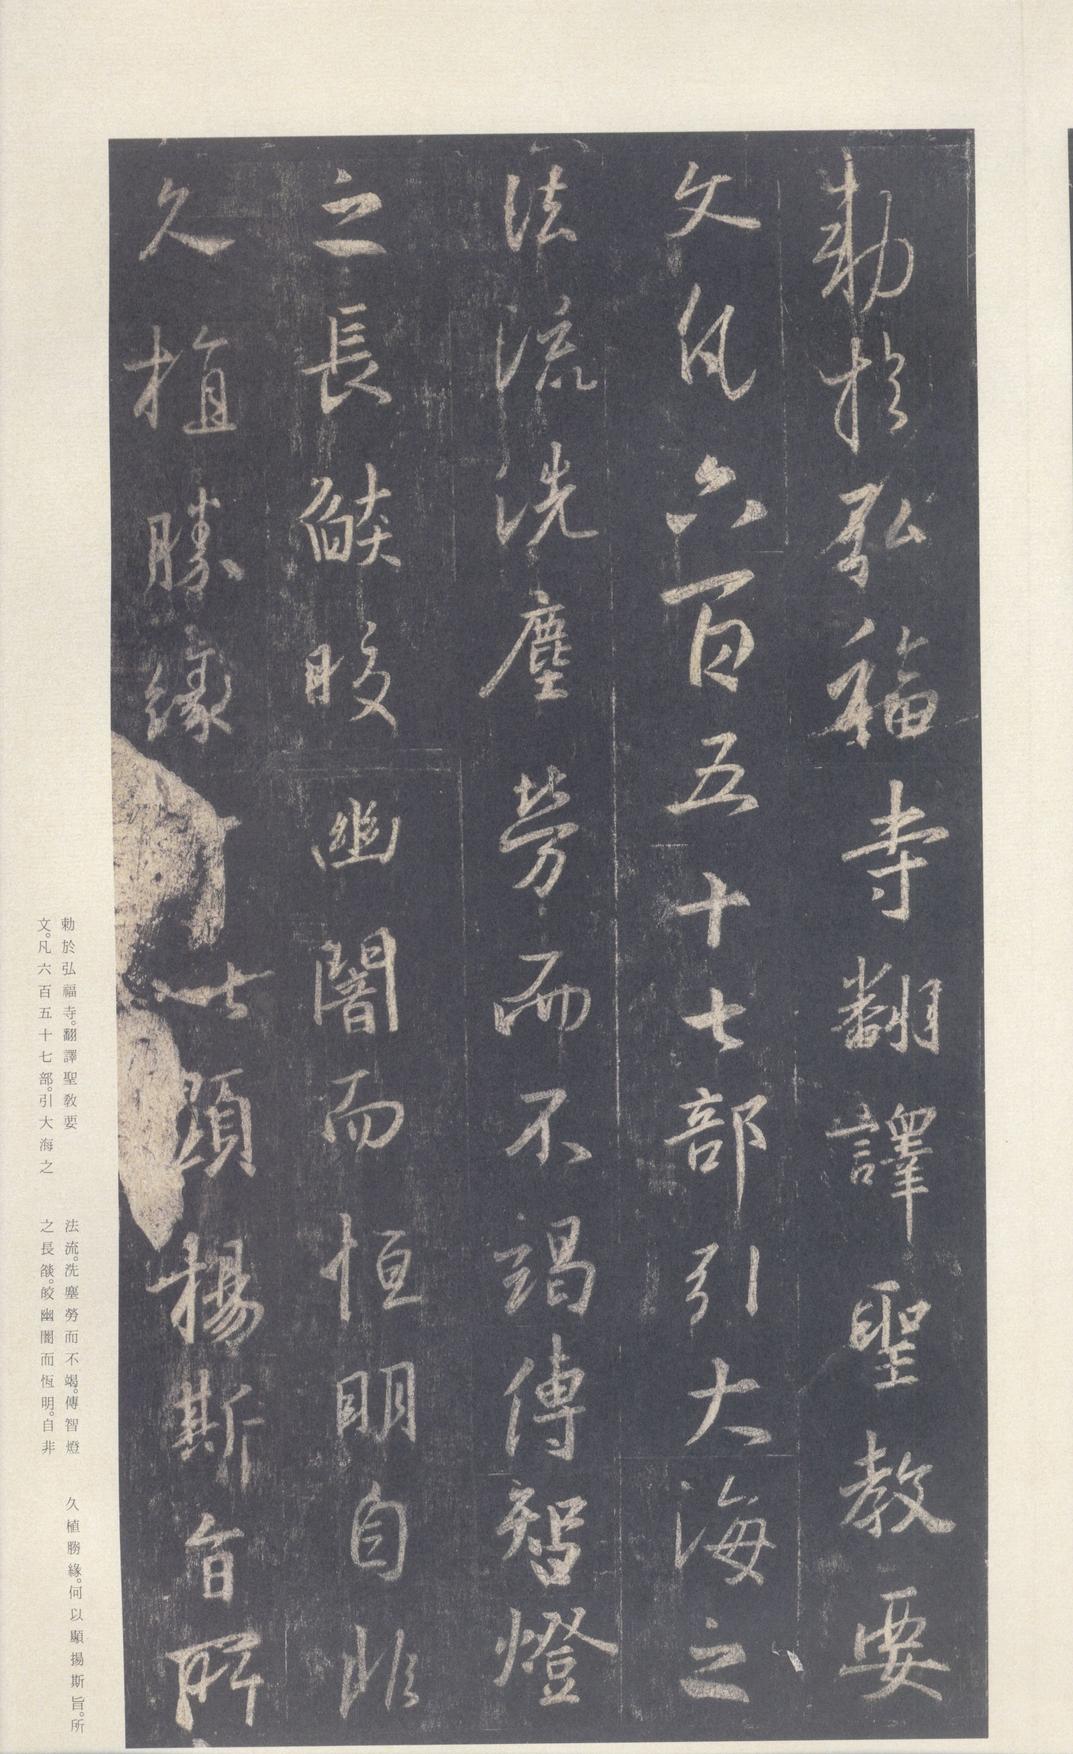 勅於弘福寺翻譯聖教要
文凡六百五十七部引大海之
法流洗塵勞而不竭傳智燈
之長焰皎幽闇而恒明自非
久植勝緣何以顯揚斯旨所
勅於弘福寺。翻譯聖教要
文。凡六百五十七部。引大海之
法流。洗塵勞而不竭。傳智燈
之長燄。皎幽闇而恆明。自非
久植勝緣。何以顯揚斯旨。所